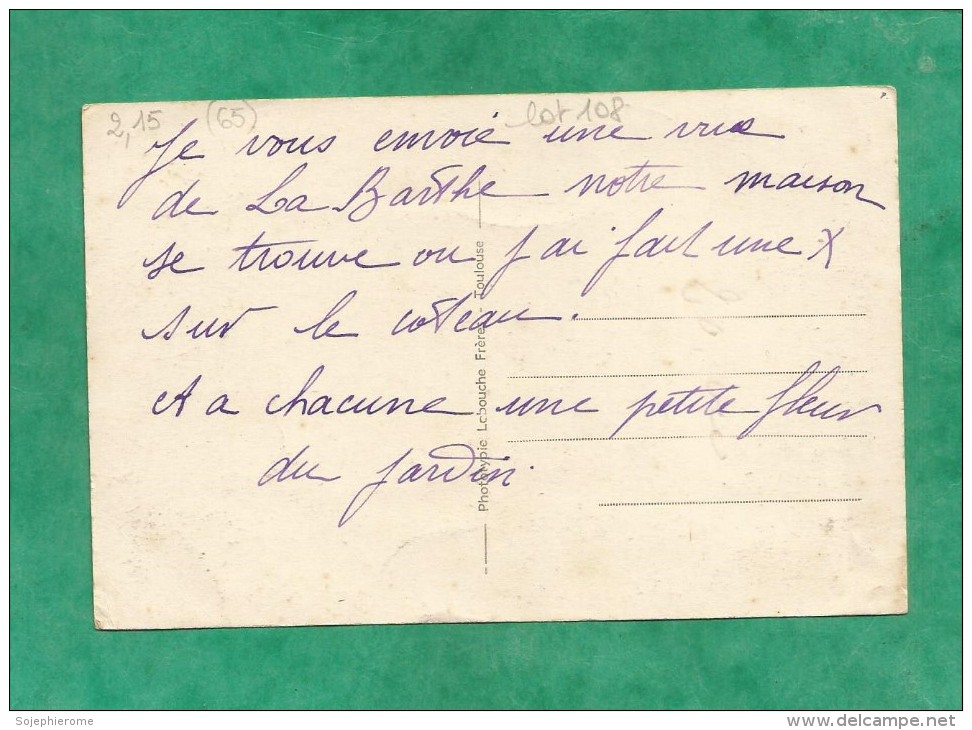 2,15 (65) lot 108
Je vous envoie une vue
de La Barthe notre maison
se trouve ou j'ai fait une X
sur le coteau.
et a chacune une petite fleur
du jardin.
Phototypie Labouche Frères - Toulouse
Sojephierome
www.delcampe.net